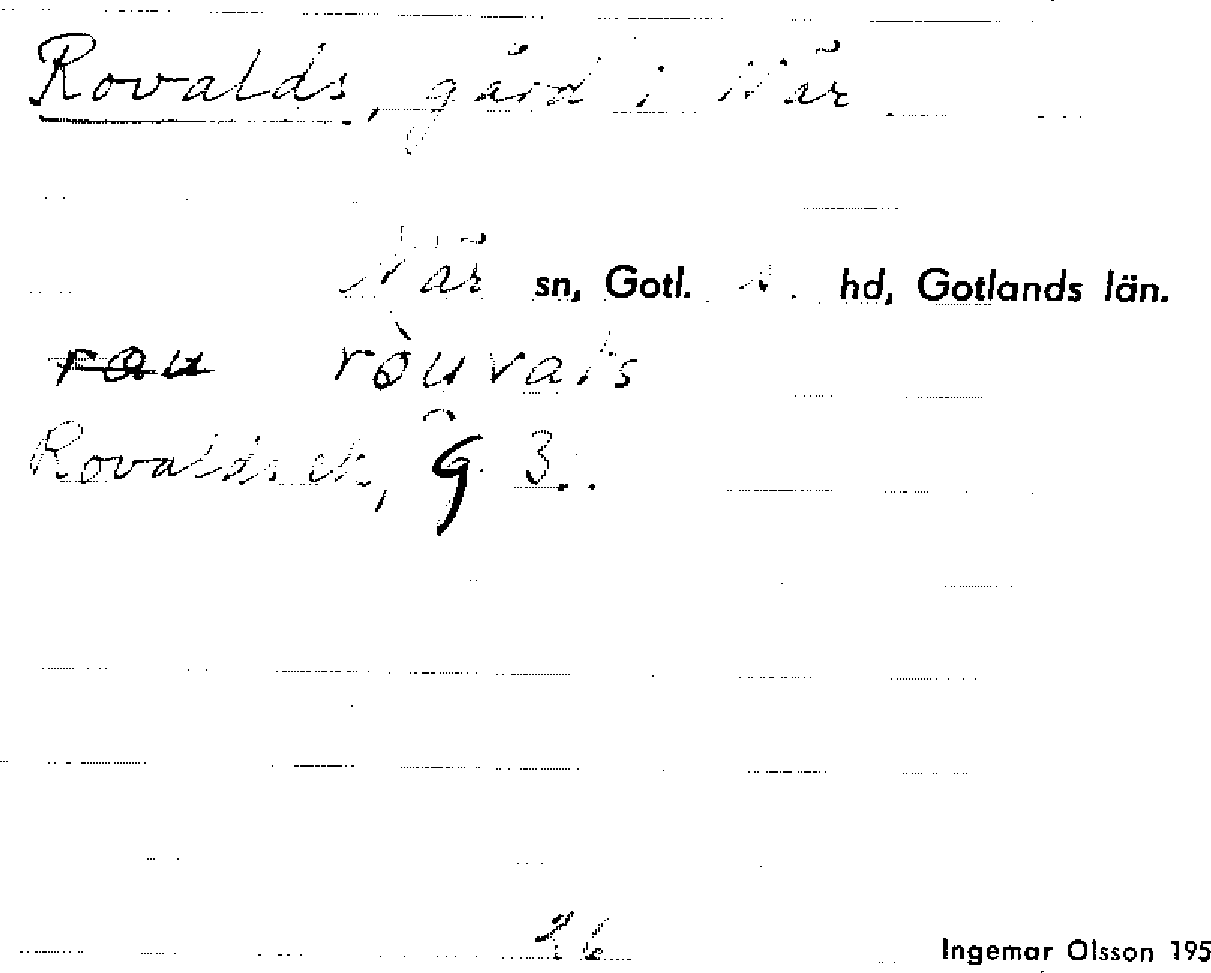 Rovalds, gård i När
När sn, Gotl. S. hd, Gotlands län.
rau ròuvals
Rovalds ek, G 3.
26
Ingemar Olsson 195